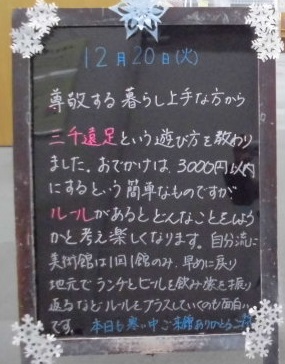 12月20日(火)
尊敬する暮らし上手な方から
三千遠足という遊び方を教わり
ました。おでかけは、3000円以内
にするという簡単なものですが
ルールがあるとどんなことをしよう
かと考え楽しくなります。自分流に
美術館は1日1館のみ、早めに戻り
地元でランチとビールを飲み旅を振り
返るなどルールをプラスしていくのも面白い
です。本日も寒い中ご来館ありがとうござ